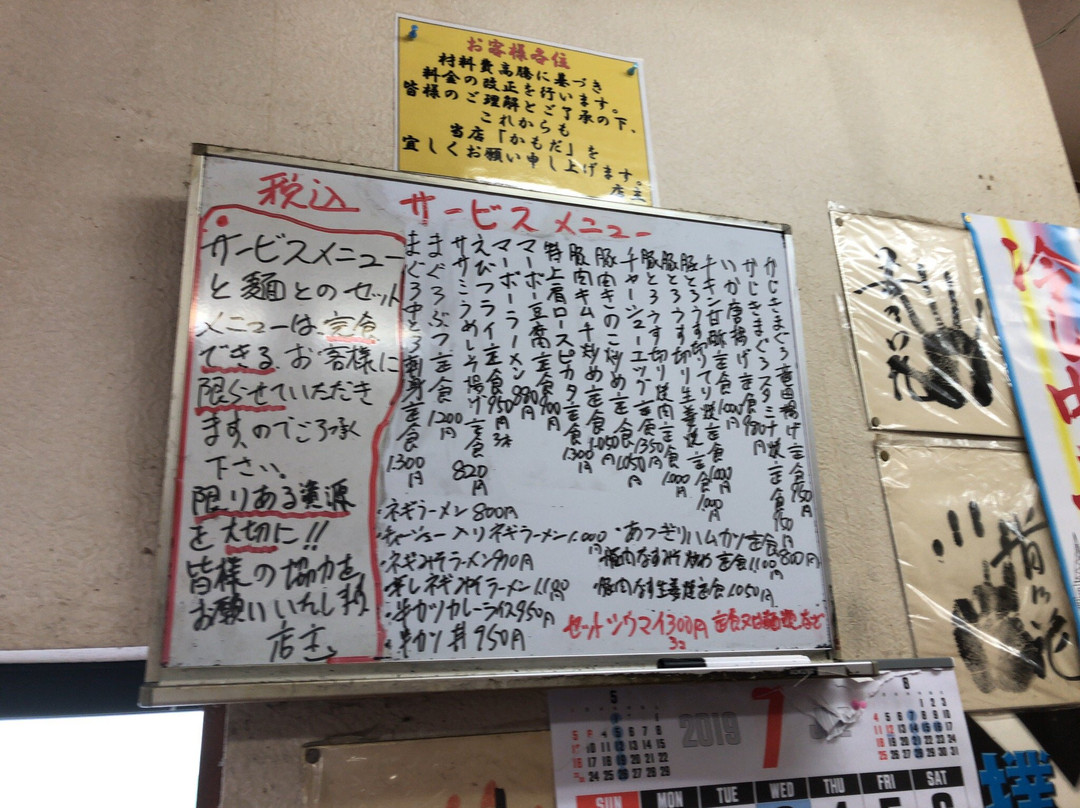 お客様各位
材料費高騰に基づき
料金の改正を行います。
皆様のご理解とご了承の下、
これからも
当店「かもだ」を
宜しくお願い申し上げます。
店主
税込 サービスメニュー
サービスメニュー
と麺とのセット
メニューは、完食
できるお客様に
限らせていただき
ます、のでご了承
下さい。
限りある資源
を大切に!!
皆様の協力を
お願いいたします
店主
かじきまぐろ竜田揚げ定食 950円
かじきまぐろスタミナ焼定食 950円
いか唐揚げ定食 980円
チキン甘酢定食 1000円
豚とろうす切りてり焼定食 1000円
豚とろうす切り生姜焼定食 1000円
豚とろうす切り焼肉定食 1000円
チャーシューエッグ定食 1350円
豚肉きのこ炒め定食 1050円
豚肉キムチ炒め定食 1050円
特上肩ロースピカタ定食 1300円
マーボー豆腐定食 900円
マーボーラーメン 880円
えびフライ定食 950円 3本
ササミうめしそ揚げ定食 820円
まぐろぶつ定食 1200円
まぐろ中とろ刺身定食 1300円
・ネギラーメン 800円
・チャーシュー入りネギラーメン 1000円
・ネギみそラーメン 900円
・辛しネギみそラーメン 1100
・串カツカレーライス 950円
・串カツ丼 950円
・あつぎりハムカツ定食 800円
・豚肉なすみそ炒め定食 1100円
・豚肉なす生姜焼定食 1050円
セットシウマイ300円 定食又は麺類など
3コ
冷し中
5
2019
7
8
SUN MON TUE WED THU FRI SAT